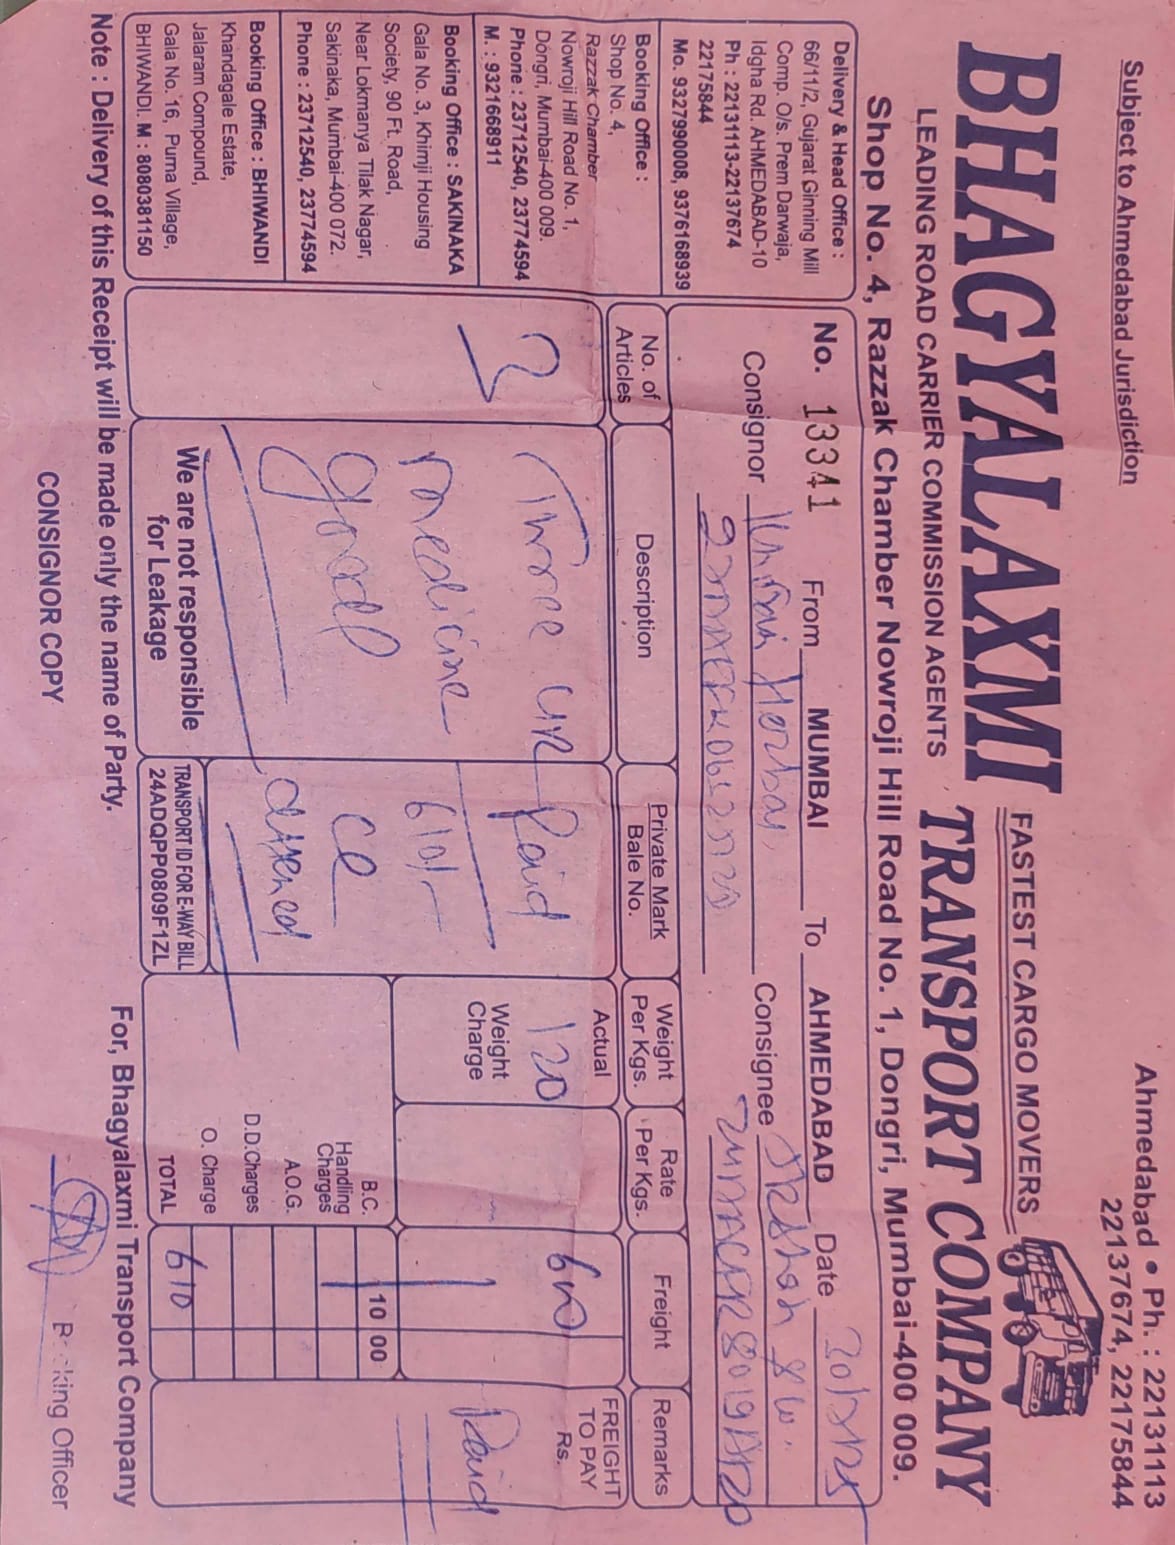 Subject to Ahmedabad Jurisdiction
Ahmedabad • Ph. : 22131113
22137674, 22175844
FASTEST CARGO MOVERS
BHAGYALAXMI TRANSPORT COMPANY
LEADING ROAD CARRIER COMMISSION AGENTS
Shop No. 4, Razzak Chamber Nowroji Hill Road No. 1, Dongri, Mumbai-400 009.
Delivery & Head Office :
66/11/2, Gujarat Ginning Mill
Comp. O/s. Prem Darwaja,
Idgha Rd. AHMEDABAD-10
Ph : 22131113-22137674
22175844
Mo. 9327990008, 9376168939
Booking Office :
Shop No. 4,
Razzak Chamber
Nowroji Hill Road No. 1,
Dongri, Mumbai-400 009.
Phone : 23712540, 23774594
M. : 9321668911
Booking Office : SAKINAKA
Gala No. 3, Khimji Housing
Society, 90 Ft. Road,
Near Lokmanya Tilak Nagar,
Sakinaka, Mumbai-400 072.
Phone : 23712540, 23774594
Booking Office : BHIWANDI
Khandagale Estate,
Jalaram Compound,
Gala No. 16, Purna Village,
BHIWANDI. M : 8080381150
No. 13341 From MUMBAI To AHMEDABAD Date
Consignor Consignee
No. of Articles
Description
Private Mark
Bale No.
Weight Per Kgs.
Rate Per Kgs.
Freight
Remarks
3
Three
medicine
good
Paid
610/-
CC
Actual
120
Weight Charge
600
FREIGHT TO PAY Rs.
Paid
B.C. 10 00
Handling Charges
A.O.G.
D.D.Charges
O. Charge
TOTAL 610
We are not responsible
for Leakage
TRANSPORT ID FOR E-WAY BILL
24ADQPP0809F1ZL
Note : Delivery of this Receipt will be made only the name of Party.
For, Bhagyalaxmi Transport Company
CONSIGNOR COPY
Booking Officer